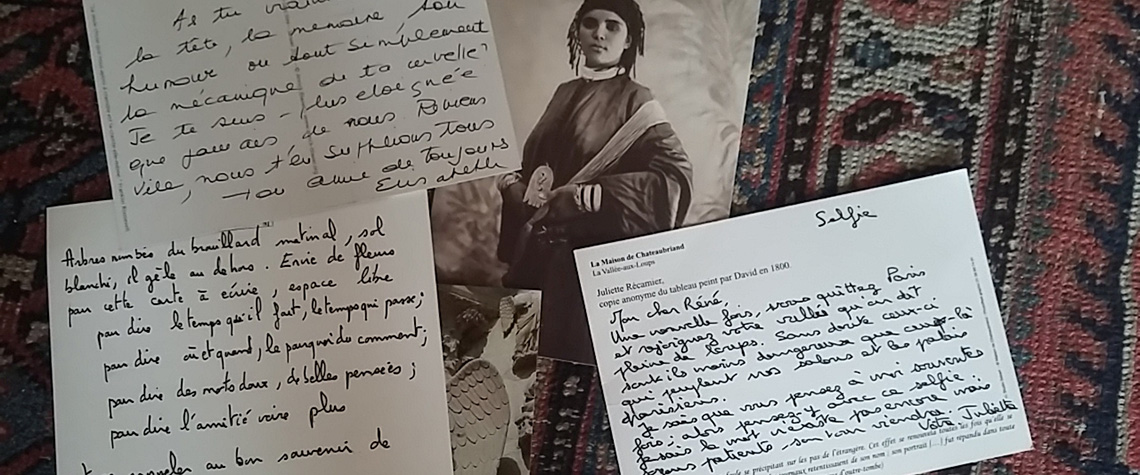 As tu
la tête, la mémoire ton
humour ou tout simplement
la mécanique de ta cervelle?
Je te suis - plus eloignée
que jamais de nous. Reviens
vite, nous t'en supplions tous
ton amie de toujours
Elisabeth
Arbres nimbés du brouillard matinal, sol
blanchi, il gèle au dehors. Envie de fleurs
par cette carte à écrire, espace libre
pour dire le temps qu'il fait, le temps qui passe;
pour dire où et quand, le pourquoi du comment;
pour dire des mots doux, de belles pensées;
pour dire l'amitié voire plus
rappeler au bon souvenir de
Selfie
La Maison de Chateaubriand
La Vallée-aux-Loups
Juliette Récamier,
copie anonyme du tableau peint par David en 1800.
Mon cher René,
Une nouvelle fois, vous quittez Paris
et rejoignez votre vallée qu'on dit
pleine de loups. Sans doute ceux-ci
sont ils moins dangereux que ceux-là
qui peuplent nos salons et les palais
parisiens.
Je sais que vous pensez à moi souventes
fois: alors pensez-y avec ce selfie.
Je sais, le mot n'existe pas encore mais
soyons patiente son tour viendra.
Votre Juliette
se précipitait sur les pas de l'étrangère. Cet effet se renouvela toutes les fois qu'elle se
retentissaient de son nom ; son portrait [...] fut répandu dans toute
d'outre-tombe)